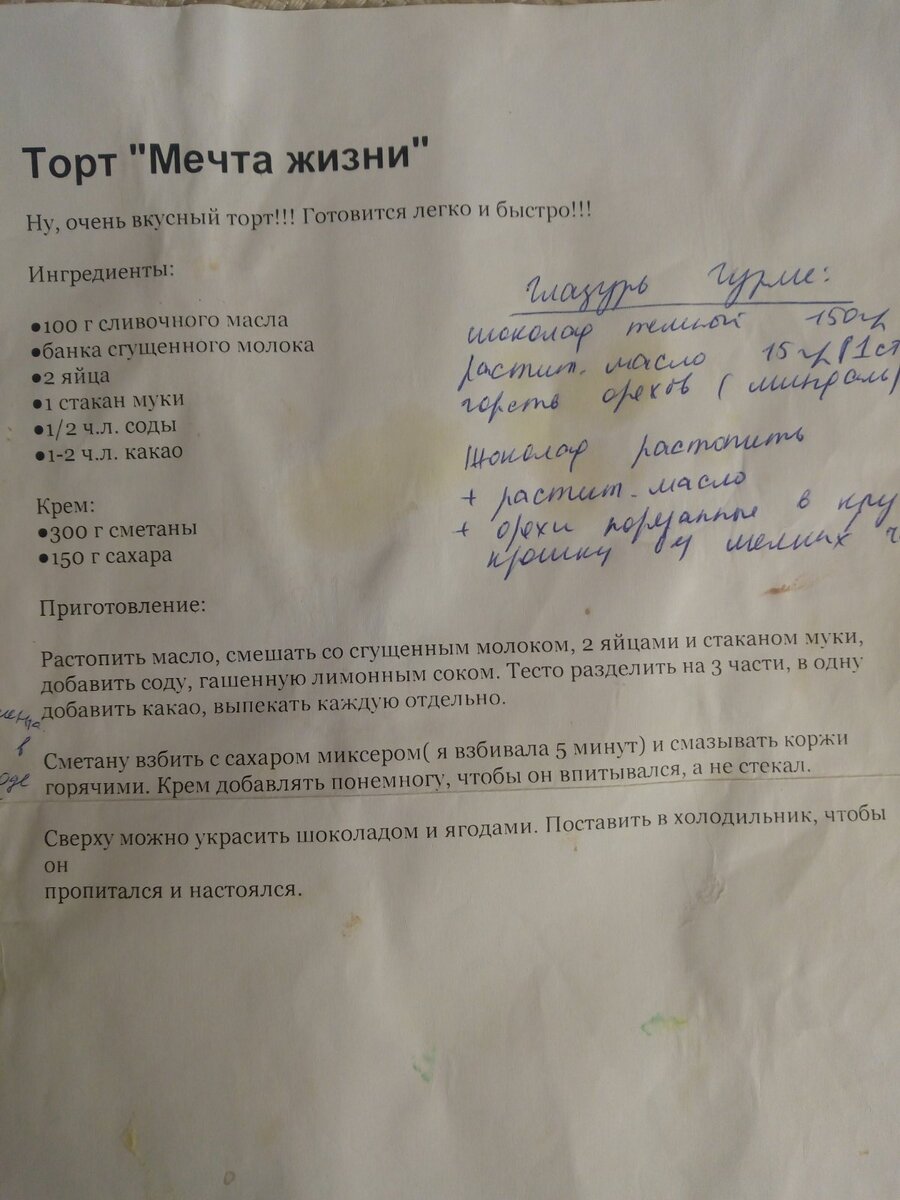 Торт "Мечта жизни"
Ну, очень вкусный торт!!! Готовится легко и быстро!!!
Ингредиенты:
●100 г сливочного масла
●банка сгущенного молока
●2 яйца
●1 стакан муки
●1/2 ч.л. соды
●1-2 ч.л. какао
Крем:
●300 г сметаны
●150 г сахара
Глазурь Гурме:
шоколад темный 150гр
растит. масло 15 гр (1ст
горсть орехов (миндаль)
Шоколад растопить
+ растит. масло
+ орехи порезанные в
крошку мелких
Приготовление:
Растопить масло, смешать со сгущенным молоком, 2 яйцами и стаканом муки,
добавить соду, гашенную лимонным соком. Тесто разделить на 3 части, в одну
добавить какао, выпекать каждую отдельно.
в
Сметану взбить с сахаром миксером( я взбивала 5 минут) и смазывать коржи
горячими. Крем добавлять понемногу, чтобы он впитывался, а не стекал.
Сверху можно украсить шоколадом и ягодами. Поставить в холодильник, чтобы
он
пропитался и настоялся.